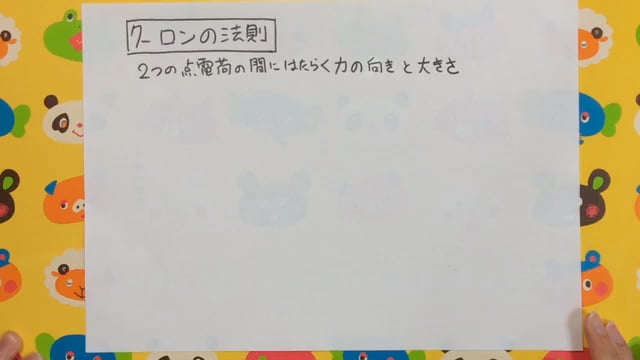 クーロンの法則
2つの点電荷の間にはたらく力の向きと大きさ